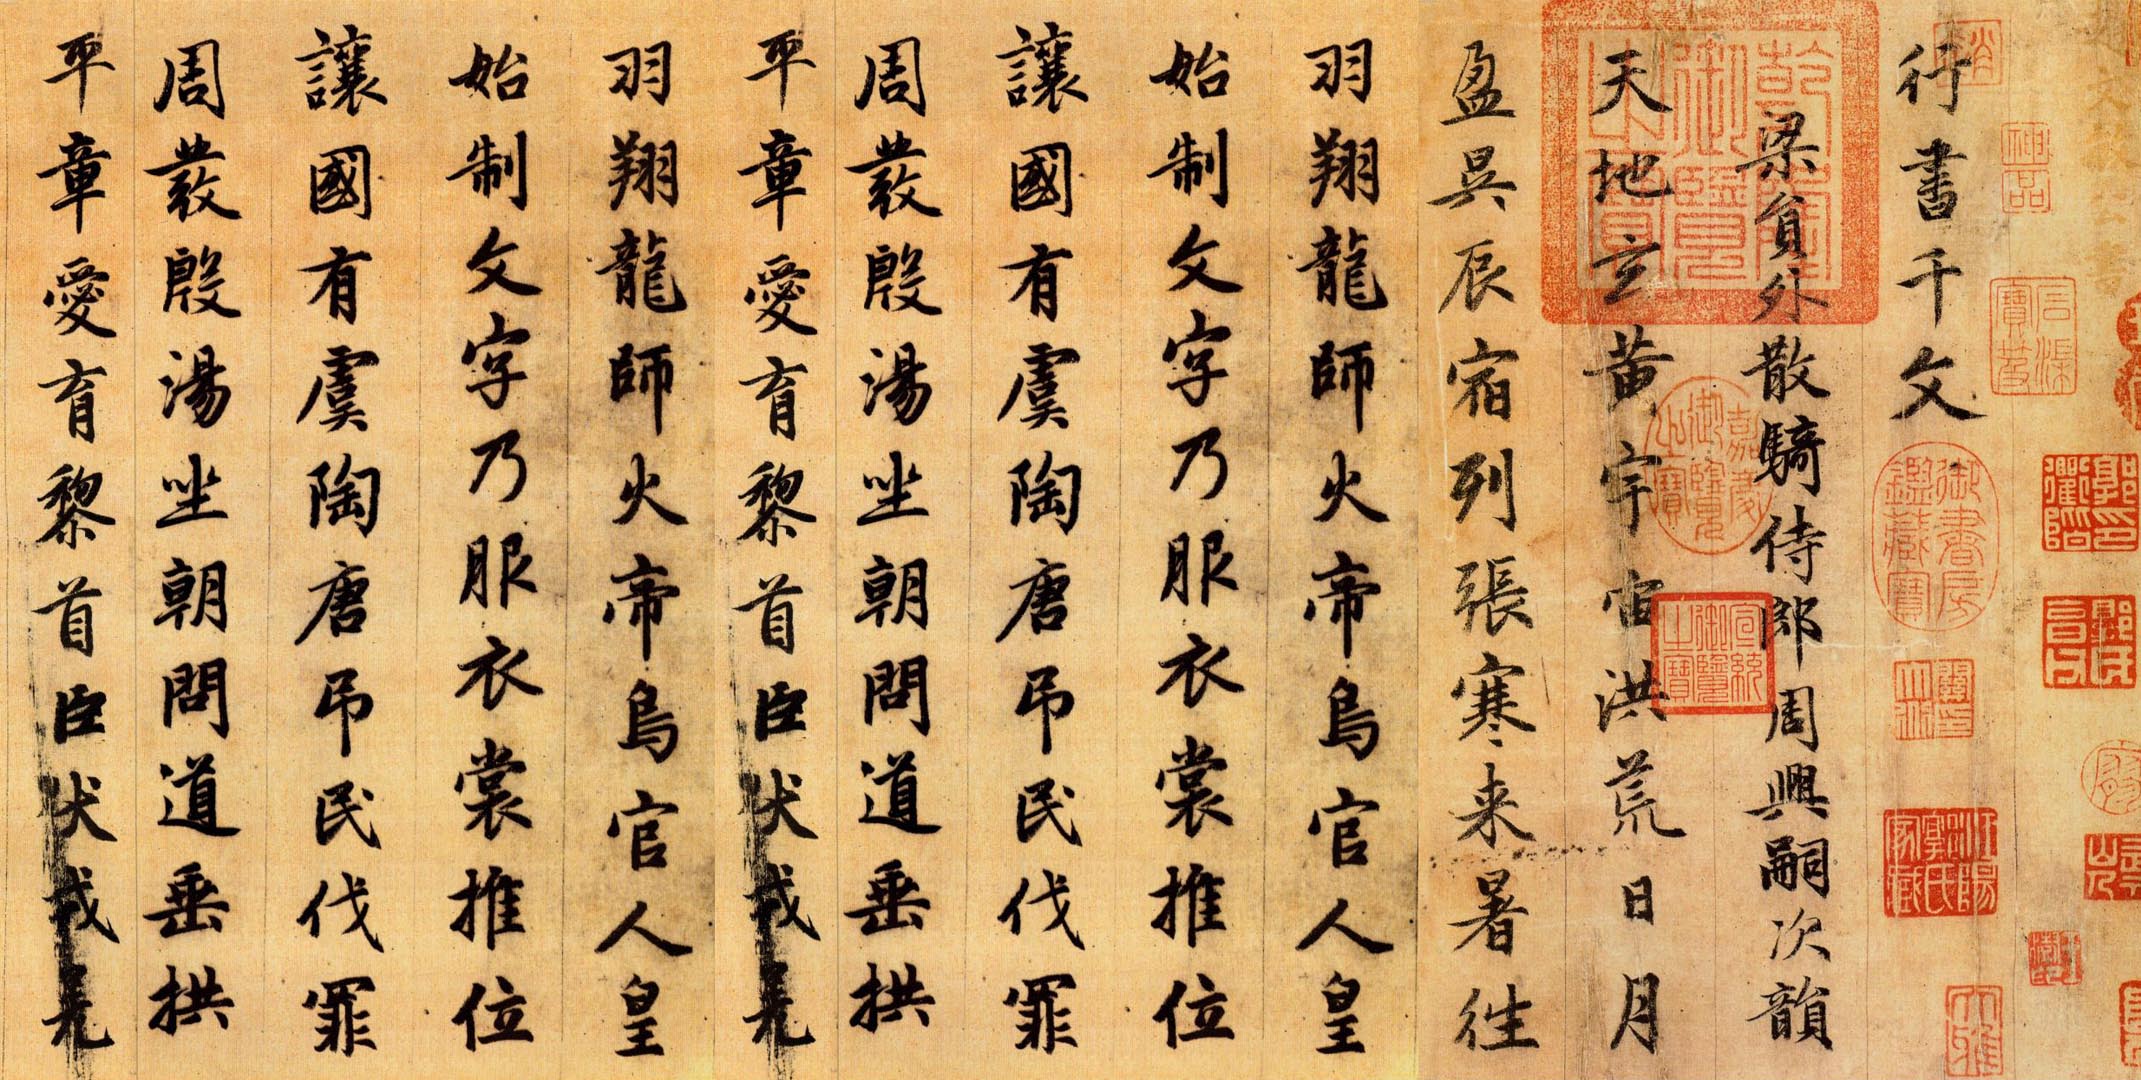 神品
御書房鑑藏寶
行書千文
梁員外散騎侍郎周興嗣次韻
乾隆御覽之寶
嘉慶御覽之寶
宣統御覽之寶
天地玄黄宇宙洪荒日月
盈昃辰宿列張寒来暑往
羽翔龍師火帝鳥官人皇
始制文字乃服衣裳推位
讓國有虞陶唐吊民伐罪
周發殷湯坐朝問道垂拱
平章愛育黎首臣伏戎羌
羽翔龍師火帝鳥官人皇
始制文字乃服衣裳推位
讓國有虞陶唐吊民伐罪
周發殷湯坐朝問道垂拱
平章愛育黎首臣伏戎羌